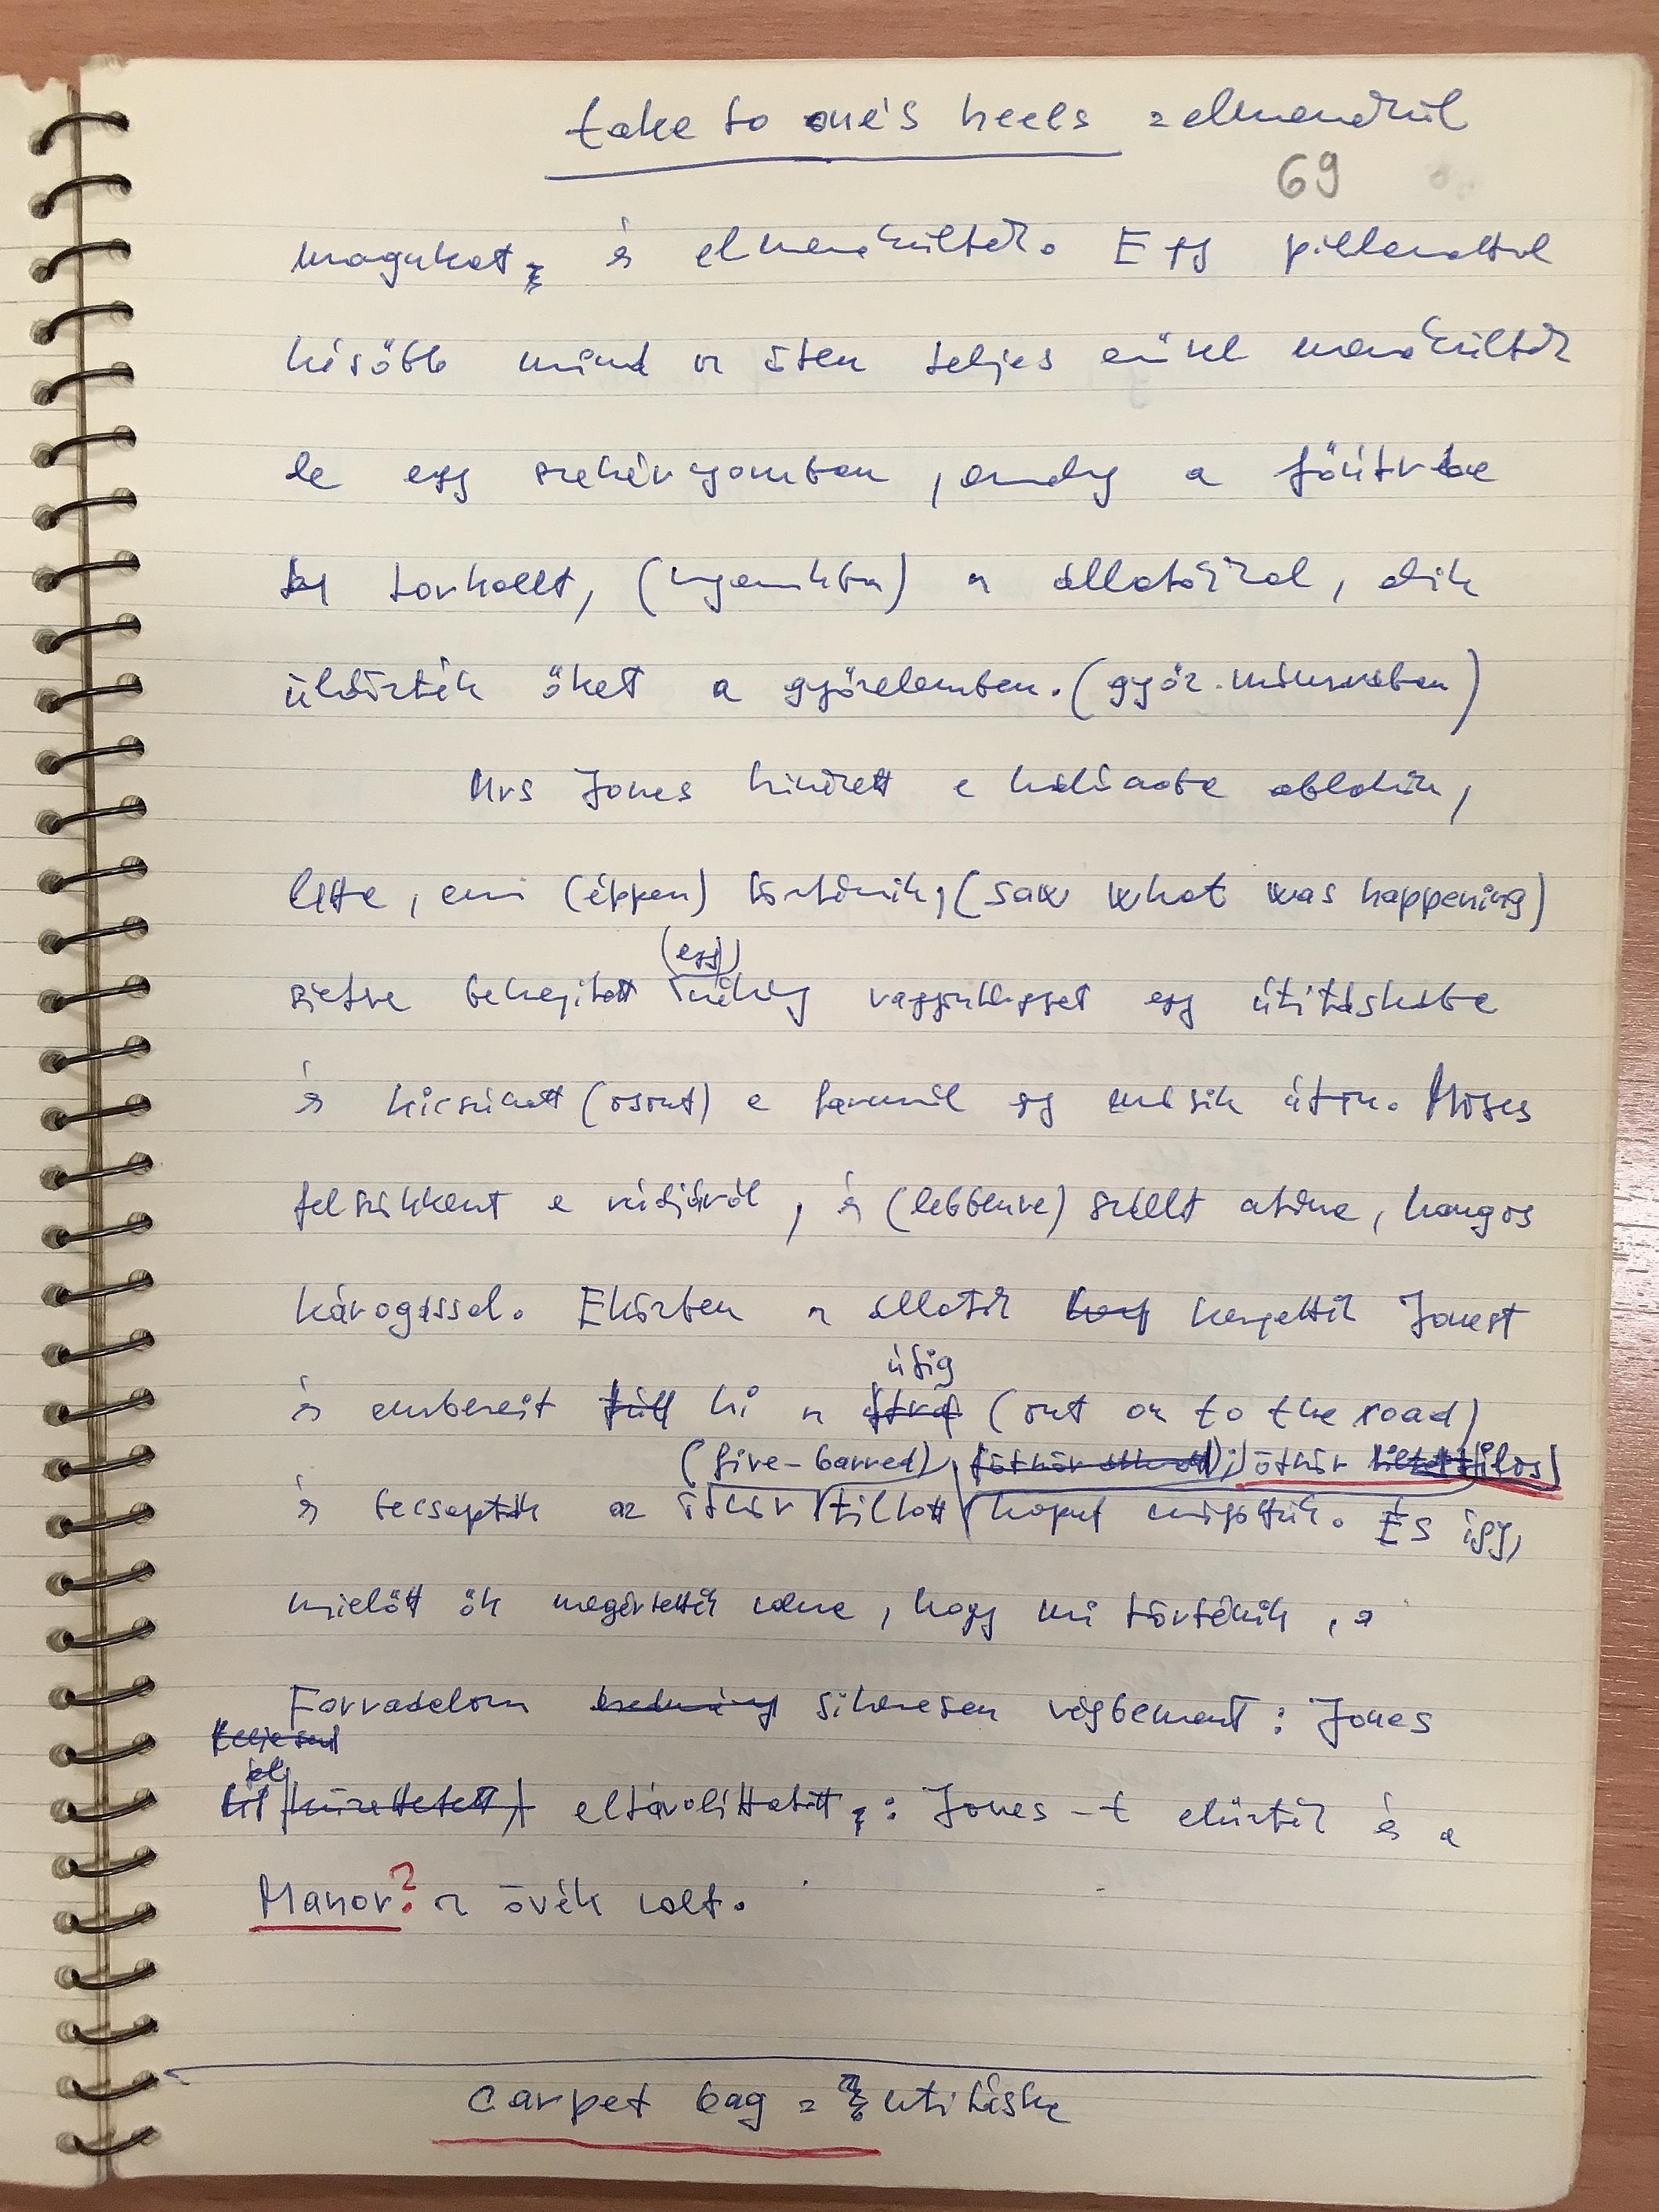 take to one's heels = elmenekül
69
magukat, és elmenekültek. Egy pillanattal
később mind az öten teljes erővel menekültek
le egy szekérnyomban, amely a főútvba
torkollt, (nyomukban) az állatokkal, akik
üldözték őket a győzelemben. (győz. mámorában)
Mrs Jones kinézett a hálószoba ablakán,
látta, ami (éppen) történik, (saw what was happening)
(egy)
sietve behajított néhány vagyontárgyat egy útitáskába
és kicsúszott (osont) a farmról egy másik úton. Moses
felszökkent a rúdjáról, és (lebbenve) szállt utána, hangos
károgással. Eközben az állatok kergették Jonest
útig
és embereit ki az (out on to the road)
(five-barred) ; ötkör ilos)
és becsapták az ötkör tillott kaput mögöttük. És így,
mielőtt ők megértették volna, hogy mi történik, a
Forradalom sikeresen végbement: Jones
eltávolíttatott : Jones-t elűzték és a
Manor? az övék volt.
carpet bag = utitáska